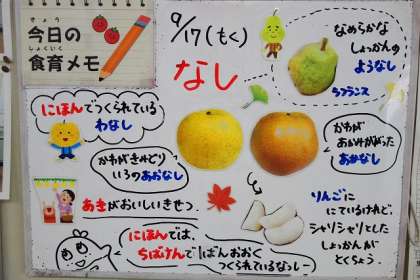 きょう
今日の
しょくいく
食育メモ
9/17(もく)
なし
なめらかな
しょっかんの
ようなし
ラフランス
にほんでつくられている
わなし
かわがきみどり
いろのあおなし
かわが
あかみがかった
あかなし
あきがおいしいきせつ.
りんごに
にているけれど、
シャリシャリとした
しょっかんが
とくちょう.
にほんでは、
ちばけんで1ばんおおく
つくられているなっしー